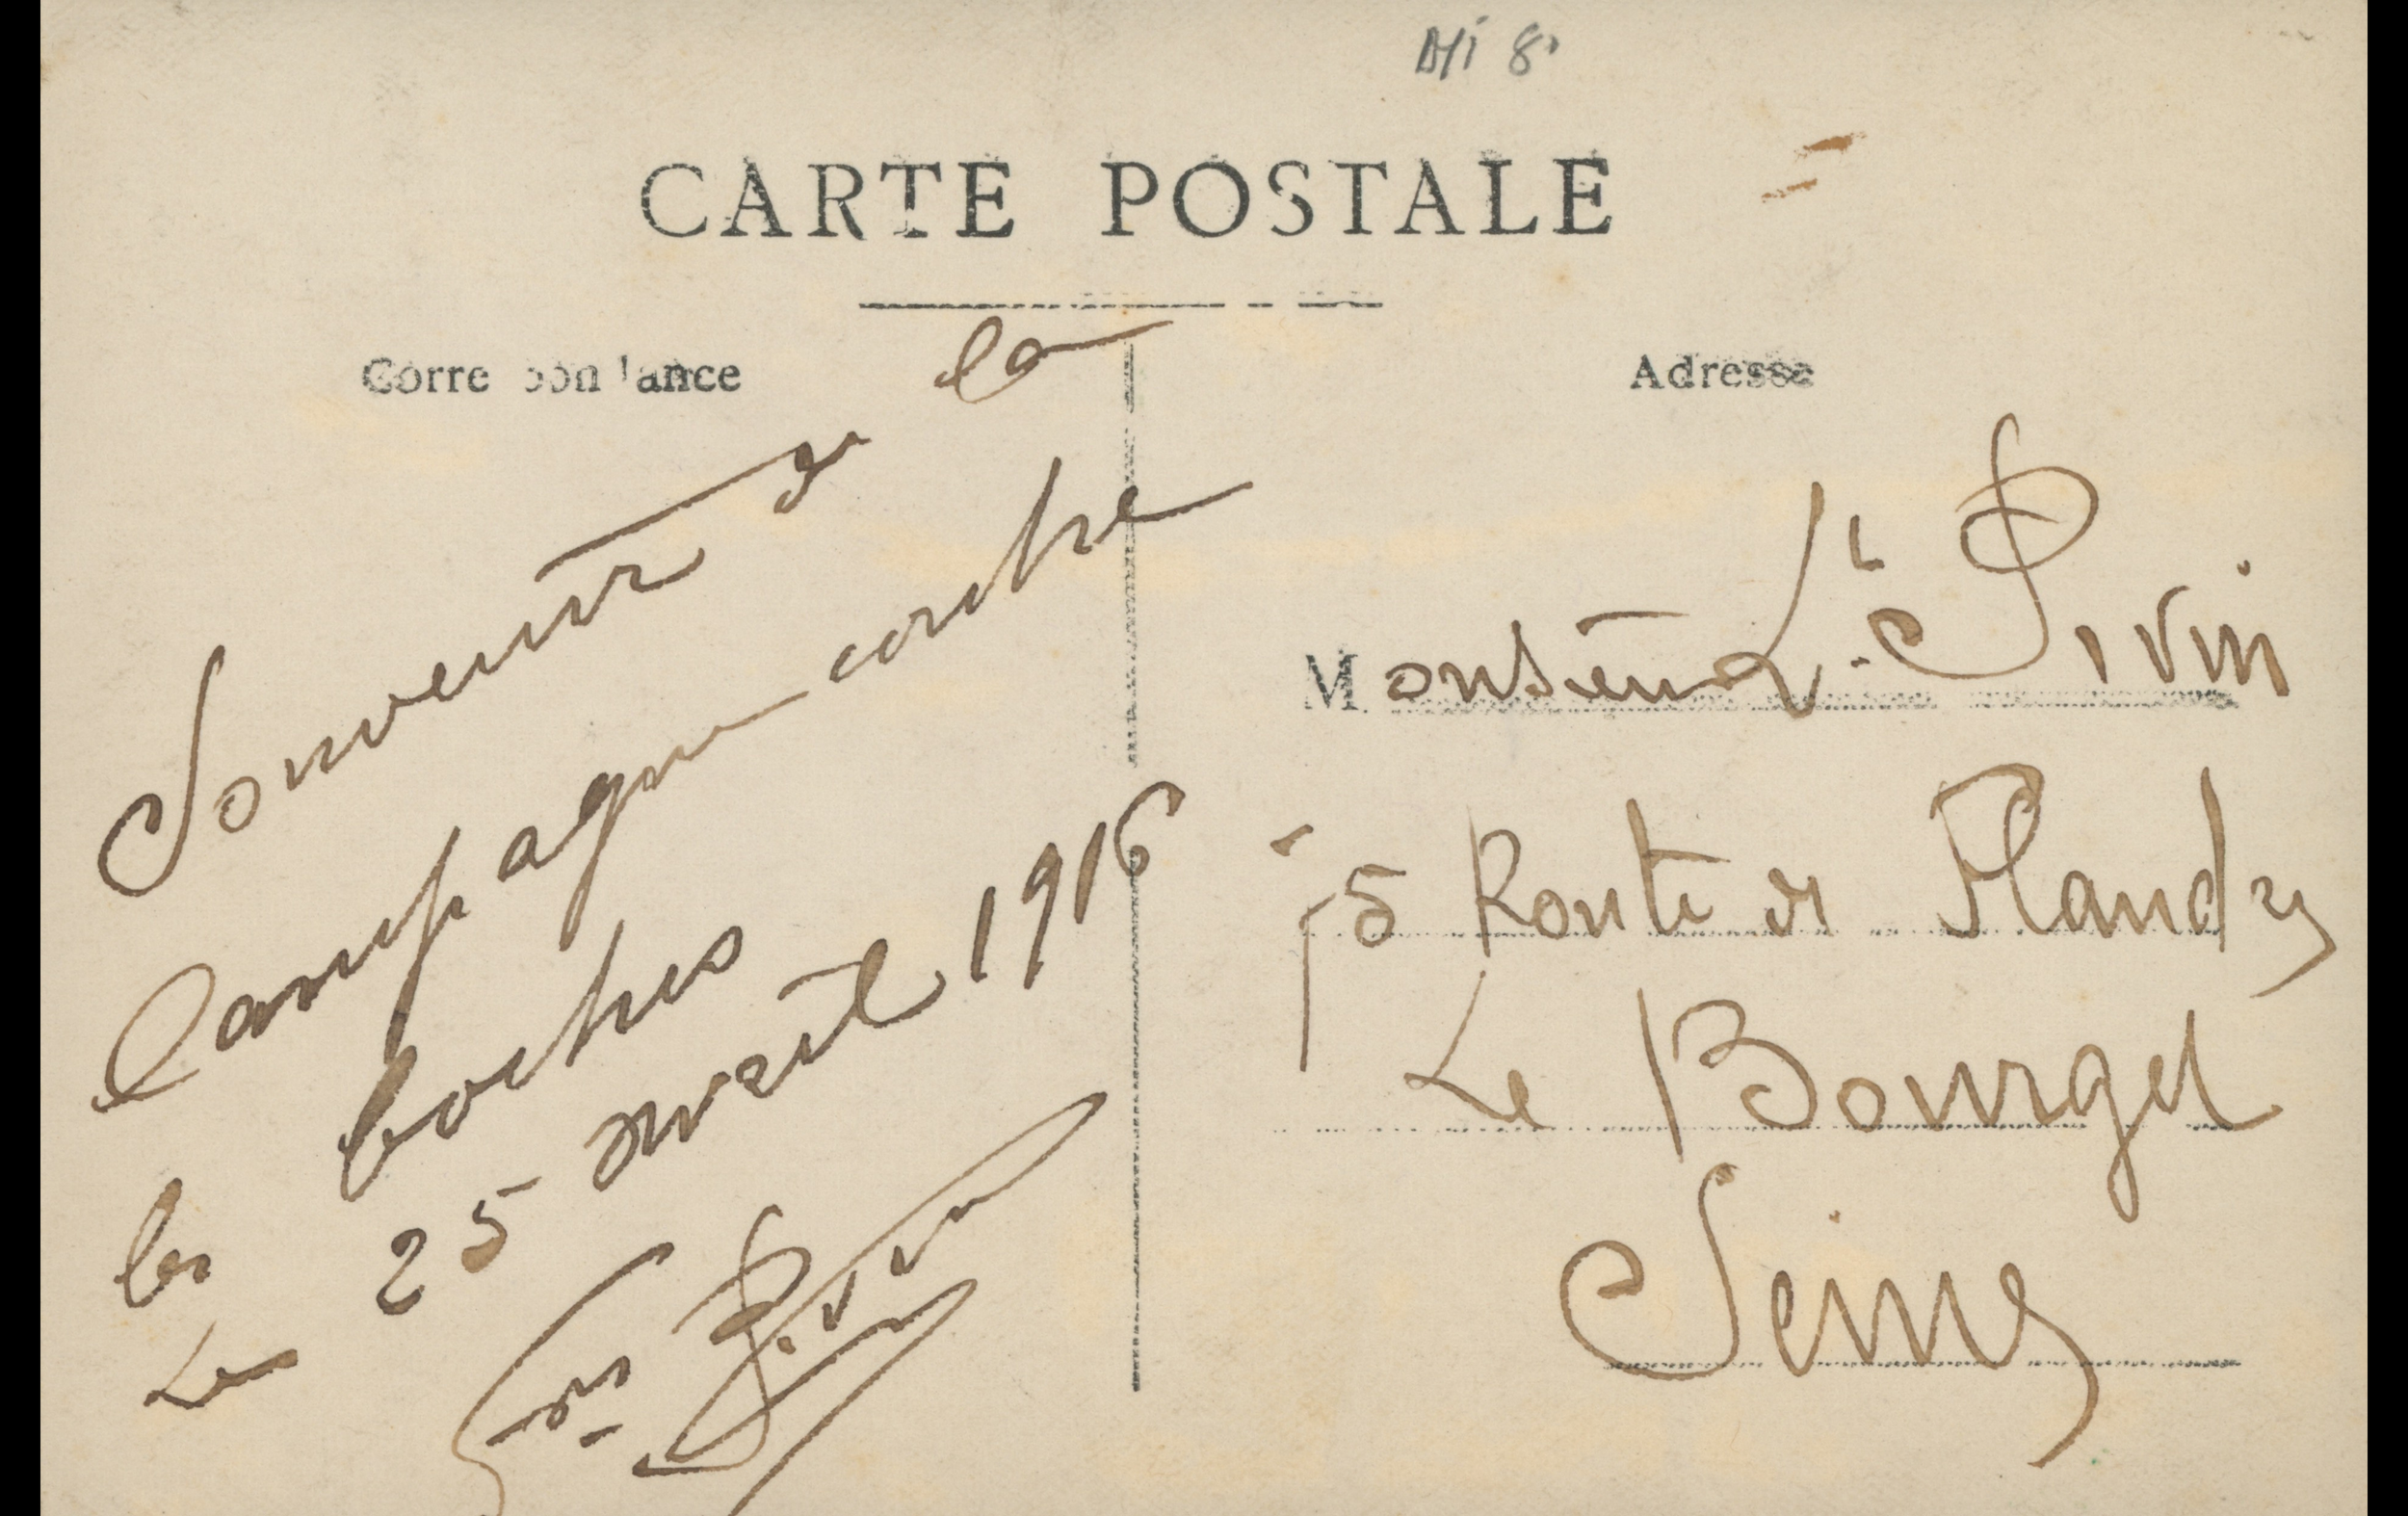 CARTE POSTALE
Correspondance
Adresse
Souvenir de la
Campagne contre
les boches
Le 25 avril 1916
Pivin
Monsieur Lt Pivin
75 Route de Flandres
Le Bourget
Seine